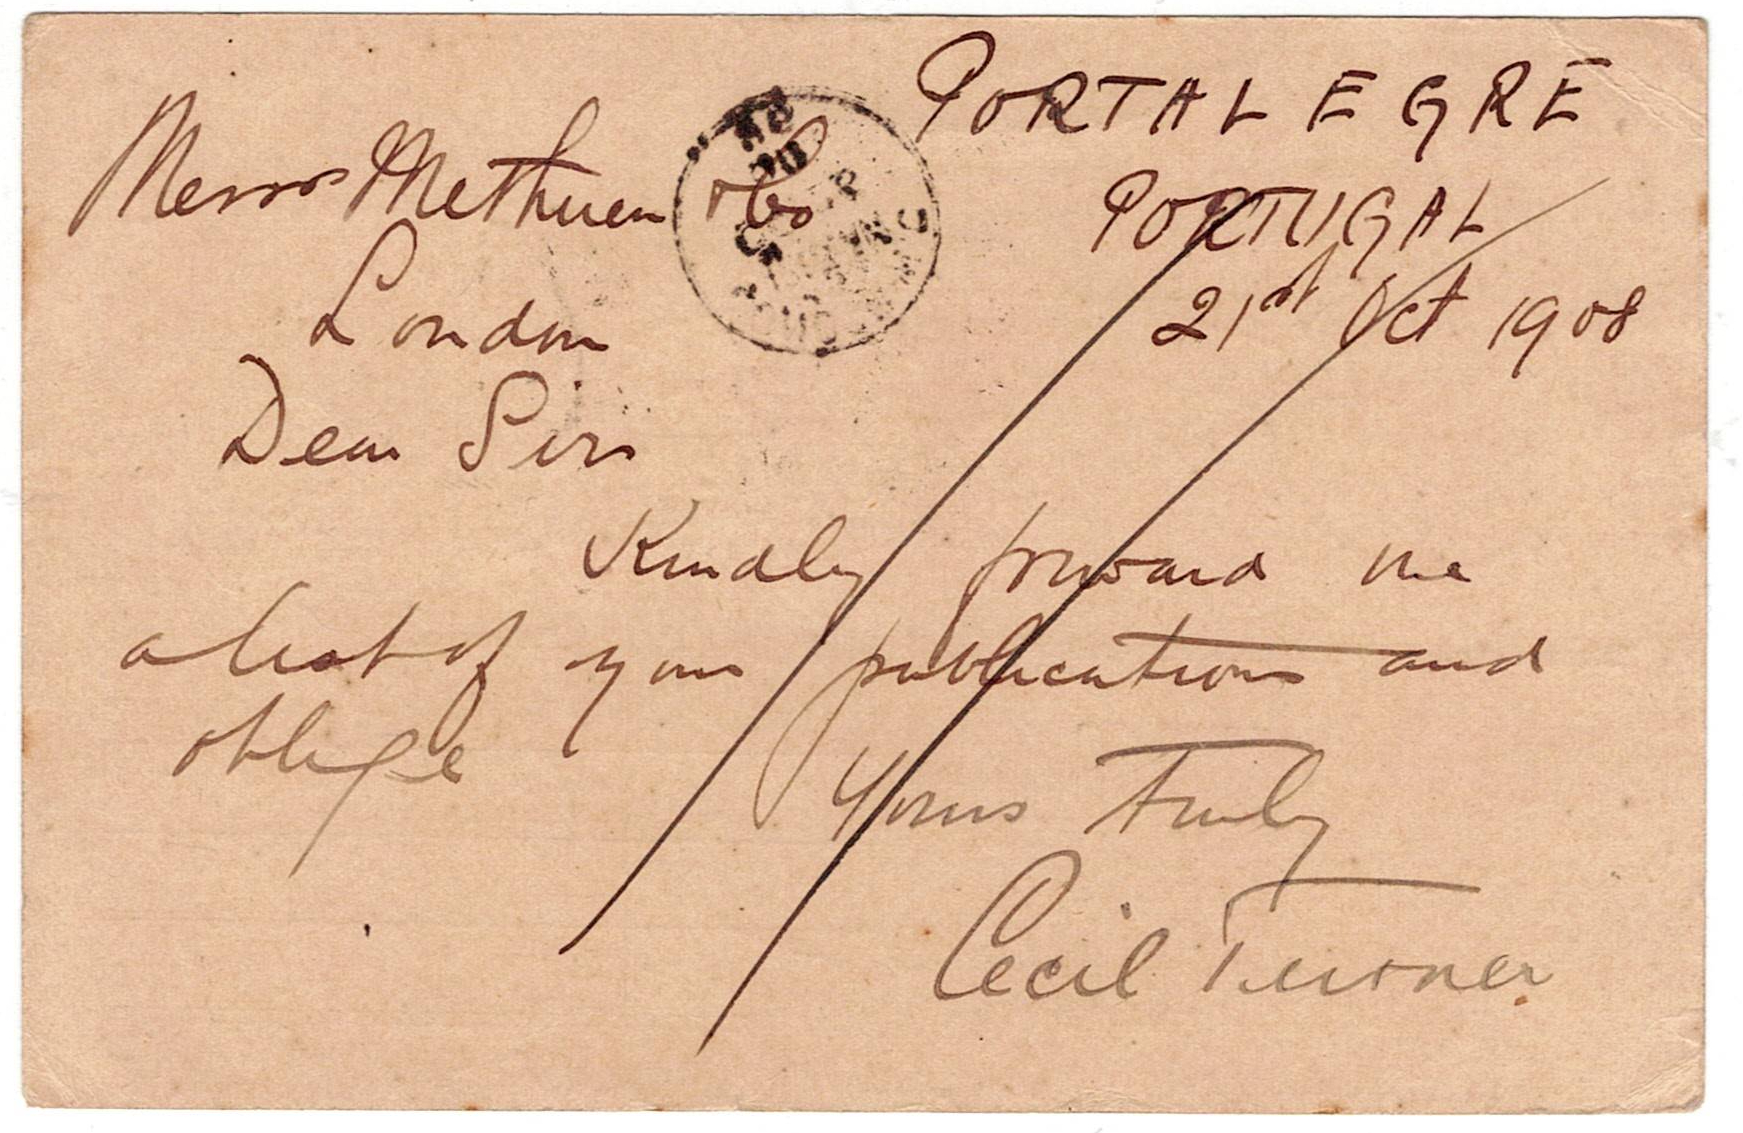 PORTALEGRE
Messrs Methuen & Co
PORTUGAL
London
21st Oct 1908
Dear Sirs
Kindly forward me
a list of your publications and
oblige
Yours truly
Cecil Turner